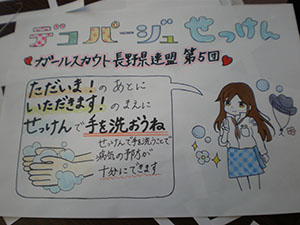 デコパージュせっけん
ガールスカウト長野県連盟 第5団
ただいま！のあとに
いただきます！のまえに
せっけんで手を洗おうね
せっけんで手を洗うことで
病気の予防が
十分にできます